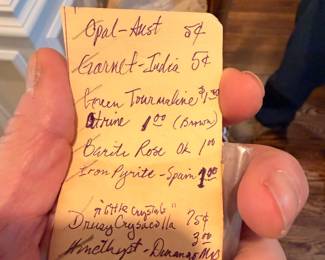 Opal - Aust 5¢
Garnet - India 5¢
Green Tourmaline $1.00
Citrine 1.00 (Brown)
Barite Rose Ok 1.00
Iron Pyrite - Spain 1.00
"Little Crystals"
Druzy Crysacolla 75¢
3.00
Amethyst - Durango Mx